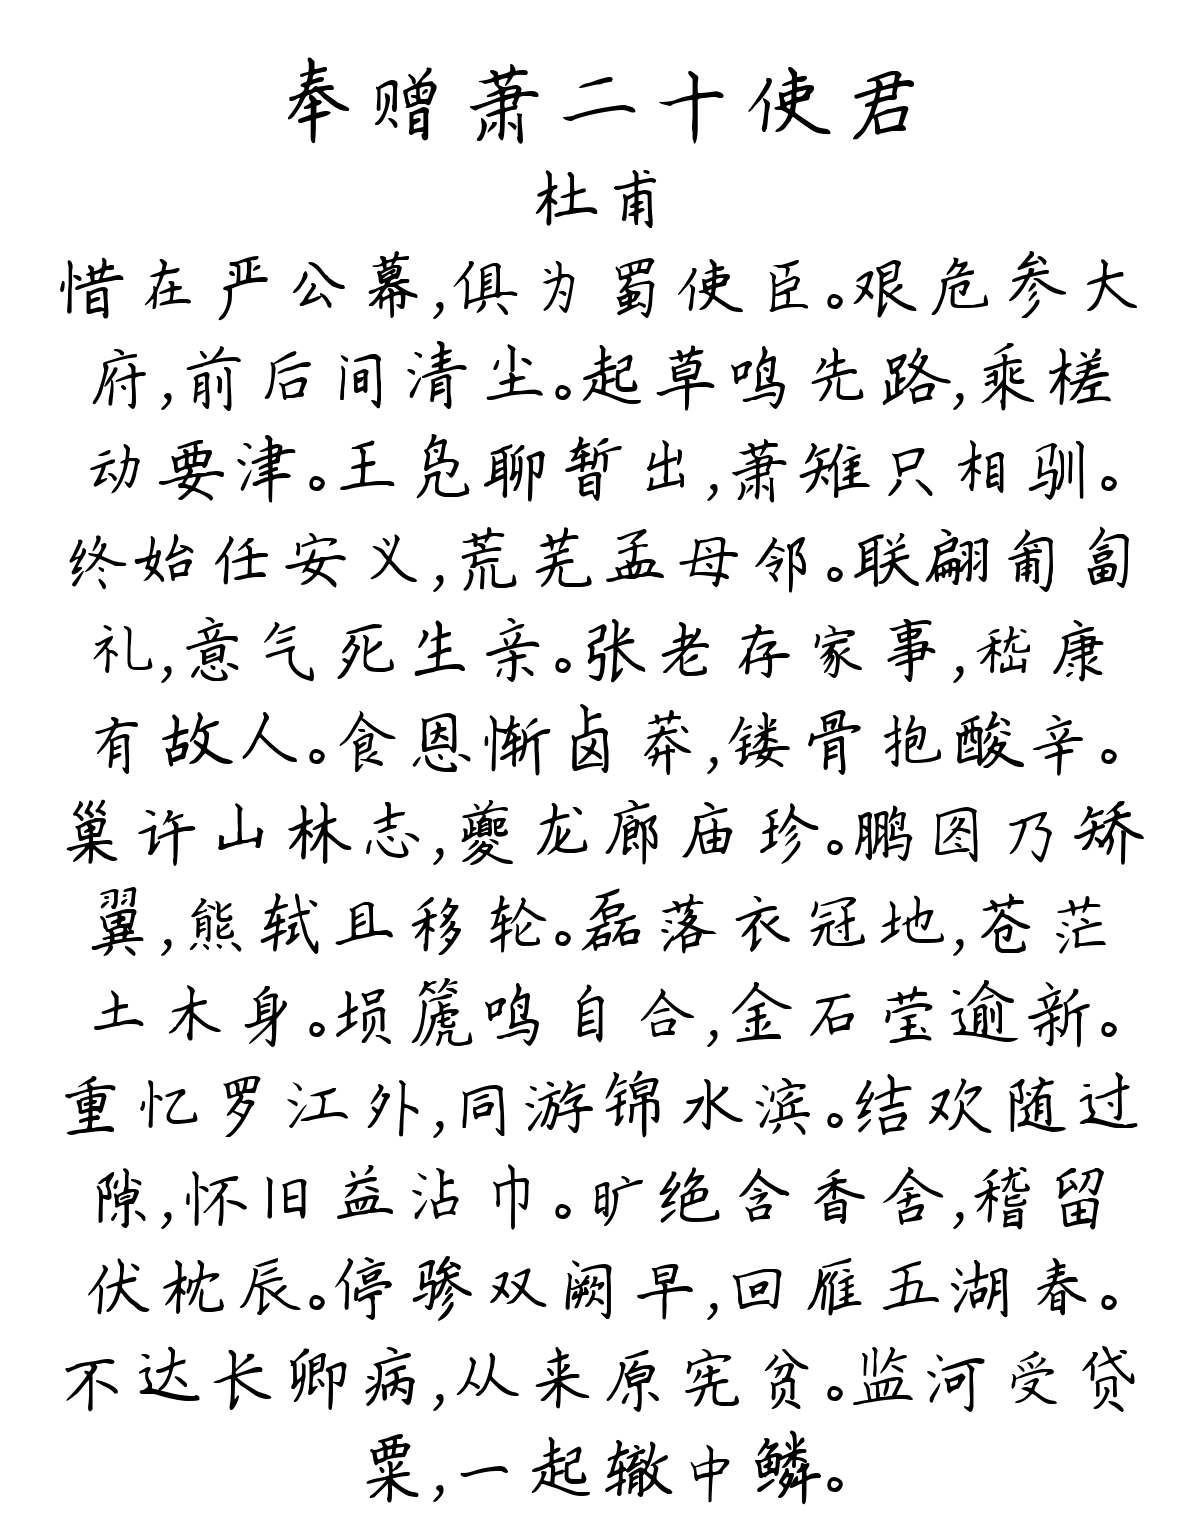 奉赠萧二十使君
杜甫
惜在严公幕,俱为蜀使臣。艰危参大
府,前后间清尘。起草鸣先路,乘槎
动要津。王凫聊暂出,萧雉只相驯。
终始任安义,荒芜孟母邻。联翩匍匐
礼,意气死生亲。张老存家事,嵇康
有故人。食恩惭卤莽,镂骨抱酸辛。
巢许山林志,夔龙廊庙珍。鹏图乃矫
翼,熊轼且移轮。磊落衣冠地,苍茫
土木身。埙篪鸣自合,金石莹逾新。
重忆罗江外,同游锦水滨。结欢随过
隙,怀旧益沾巾。旷绝含香舍,稽留
伏枕辰。停骖双阙早,回雁五湖春。
不达长卿病,从来原宪贫。监河受贷
粟,一起辙中鳞。